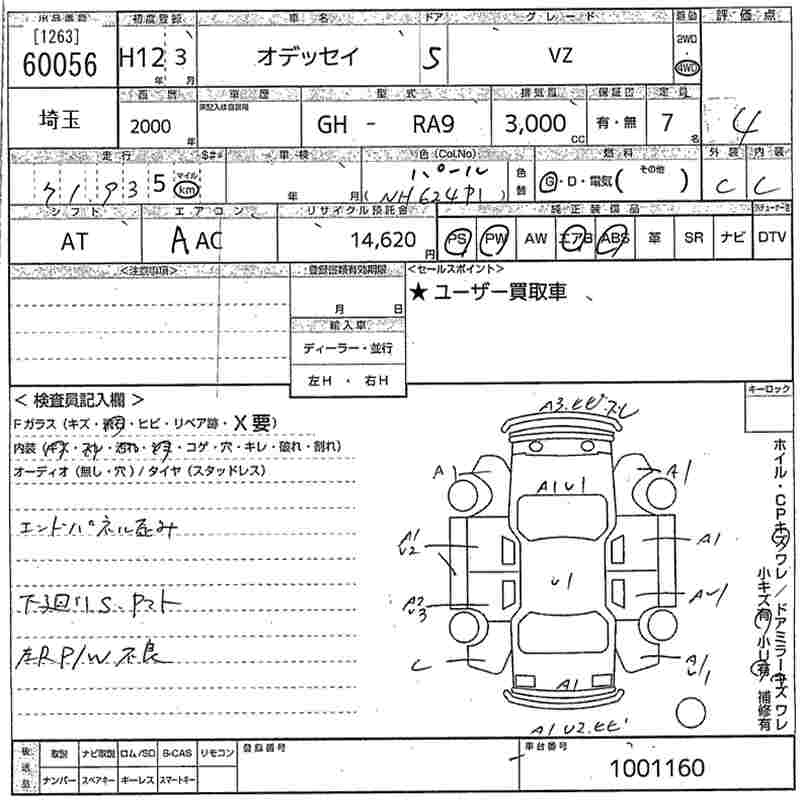 出品番号 初度登録 車名 ドア グレード 駆動 評価点
[1263]
60056 H12年 3月 オデッセイ 5 VZ 2WD・4WD
埼玉 西暦 車歴 型式 排気量 保証書 定員 4
2000年 GH - RA9 3,000cc 有・無 7名
走行 車検 色(Col.No) 燃料 外装 内装
71,935 km 年 月 パール 色替 G・D・電気( その他 ) C C
(NH624P1)
シフト エアコン リサイクル預託金 純正装備品
AT AAC 14,620円 PS PW AW エアB ABS 革 SR ナビ DTV
<注意事項> 登録書類有効期限 <セールスポイント>
月 日 ★ ユーザー買取車
輸入車
ディーラー・並行
左H ・ 右H
< 検査員記入欄 > キーロック
Fガラス(キズ・飛石・ヒビ・リペア跡・X要)
内装(キズ・スレ・汚れ・シミ・コゲ・穴・キレ・破れ・割れ)
オーディオ(無し・穴)/タイヤ(スタッドレス)
エンドパネル歪み
下廻りS、Pマト
左R P/W 不良
A3.ヒビ.スレ
A1 A1
A1U1
A1
U2 A1
U1
A2
U3 AU1
C A1
U1
A1
A1U2.ヒビ
ホイル・CPキズワレ/ドアミラーキズワレ
小キズ有/小U有/補修有
後送品 取説 ナビ取説 ロム/SD B-CAS リモコン 登録番号 車台番号
ナンバー スペアキー キーレス スマートキー 1001160